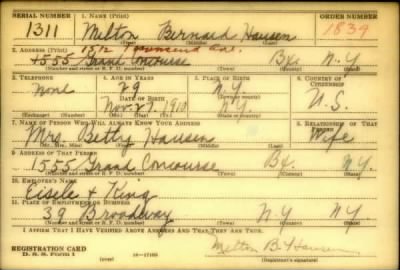 SERIAL NUMBER 1. NAME (Print) ORDER NUMBER
1311 Milton Bernard Hausen 1839
(First) (Middle) (Last)
1512 Townsend Ave.
2. ADDRESS (Print)
1555 Grand Concourse Bx. N.Y.
(Number and street or R. F. D. number) (Town) (County) (State)
3. TELEPHONE 4. AGE IN YEARS 5. PLACE OF BIRTH 6. COUNTRY OF CITIZENSHIP
None 29 N.Y. U.S.
DATE OF BIRTH
Nov 27 1910 N.Y.
7. NAME OF PERSON WHO WILL ALWAYS KNOW YOUR ADDRESS 8. RELATIONSHIP OF THAT PERSON
Mrs. Betty Hausen Wife
(Mr., Mrs., Miss) (First) (Middle) (Last)
9. ADDRESS OF THAT PERSON
1555 Grand Concourse Bx. N.Y.
(Number and street or R. F. D. number) (Town) (County) (State)
10. EMPLOYER'S NAME
Eisele & King
11. PLACE OF EMPLOYMENT OR BUSINESS
39 Broadway N.Y. N.Y.
(Number and street or R. F. D. number) (Town) (County) (State)
I AFFIRM THAT I HAVE VERIFIED ABOVE ANSWERS AND THAT THEY ARE TRUE.
REGISTRATION CARD
D. S. S. Form 1
Milton B. Hausen
(Registrant's signature)